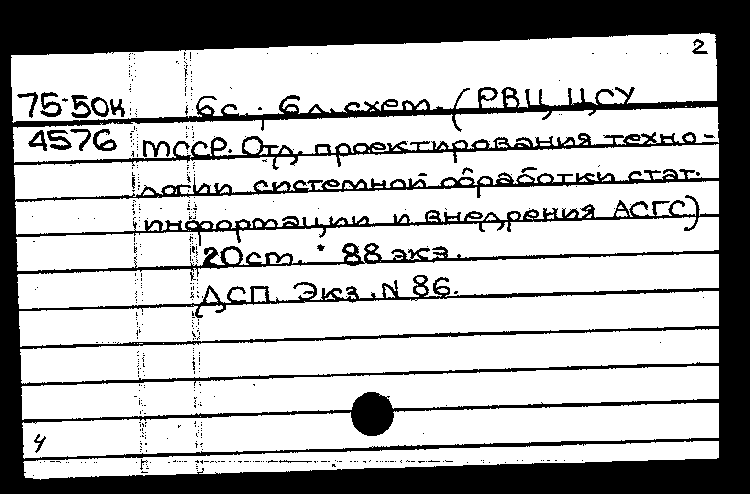 2
75-50к 6 с.; 6 л. схем. (РВЦ ЦСУ
4576 МССР. Отд. проектирования техно-
логии системной обработки стат.
информации и внедрения АСГС)
20 ст. * 88 экз.
ДСП. Экз. N 86.
4